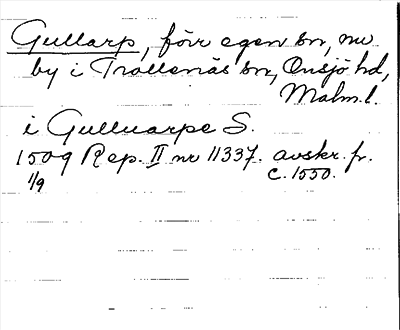 Gullarp, förr egen sn, nu
by i Trollenäs sn, Onsjö hd,
Malm.l.
i Gulluarpe S.
1509 Rep. II nr 11337. avskr. fr.
1/9 c. 1550.